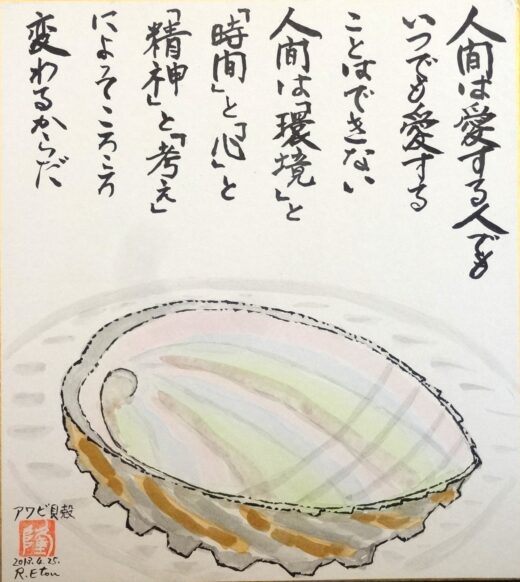 人間は愛する人でも
いつでも愛する
ことはできない
人間は「環境」と
「時間」と「心」と
「精神」と「考え」
によってころころ
変わるからだ
アワビ貝殻
隆
2013.4.25.
R.Etou